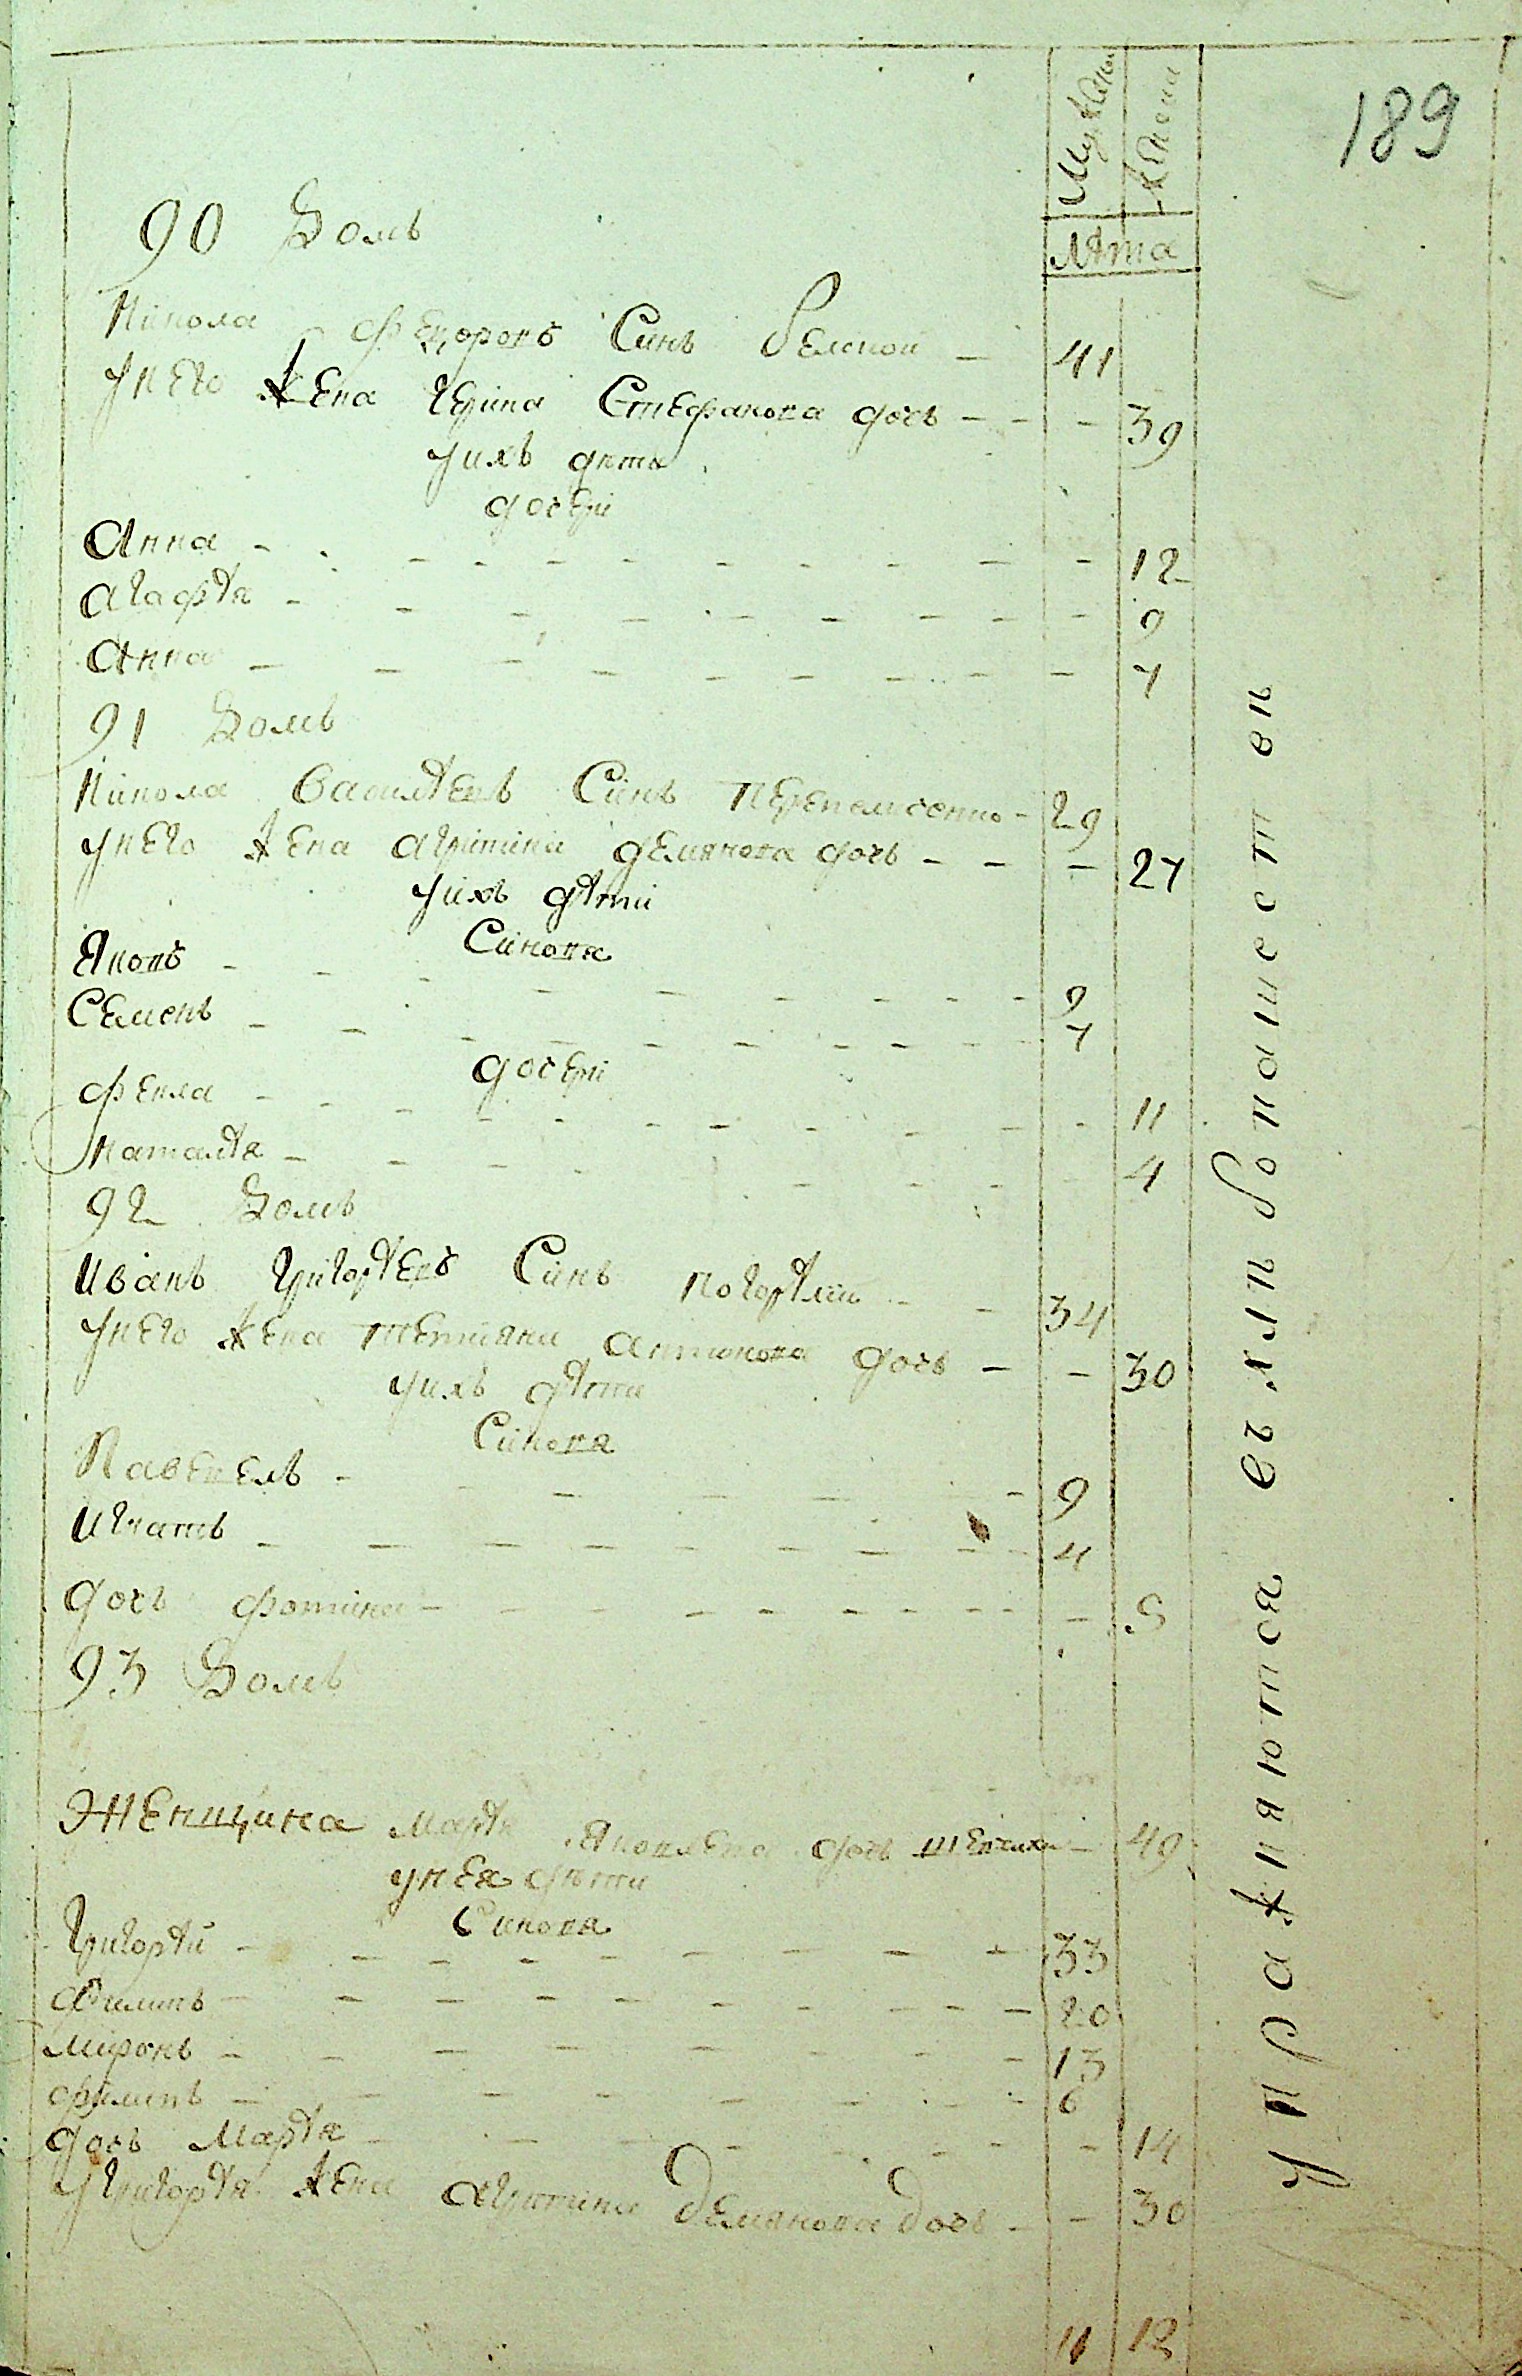 189
Мужска
Женска
Лѣта
90 Домъ
Никола Федоровъ Синъ Белскои — 41
унего жена Ирина Стефанова дочь — — — 39
уихъ дѣти
дочери
Анна — 12
Агафѣя — 9
Анна — 7
91 Домъ
Никола Василѣевъ Синъ — 29
унего жена Агрипина Демянова дочь — — — 27
уихъ дѣти
Синовя
Яковъ — 9
Семенъ — 7
дочери
Фекла — 11
Наталѣя — 4
92 Домъ
Иванъ Григорѣевъ Синъ Погорѣлии — 34
унего жена Тетияна Антонова дочь — — 30
уихъ дѣти
Синовя
Павелъ — 9
Игнатъ — 4
дочь Фотина — 5
93 Домъ
Женщина Марѣя Яковлева дочь — 49
унея дѣти
Синовя
Григорѣй — 33
Филипъ — 20
Миронъ — 13
Филипъ — 6
дочь Марѣя — 14
уГригорѣя жена Агрипина Демянова дочь — — 30
11 12
упражняются въ хлѣбопашестве